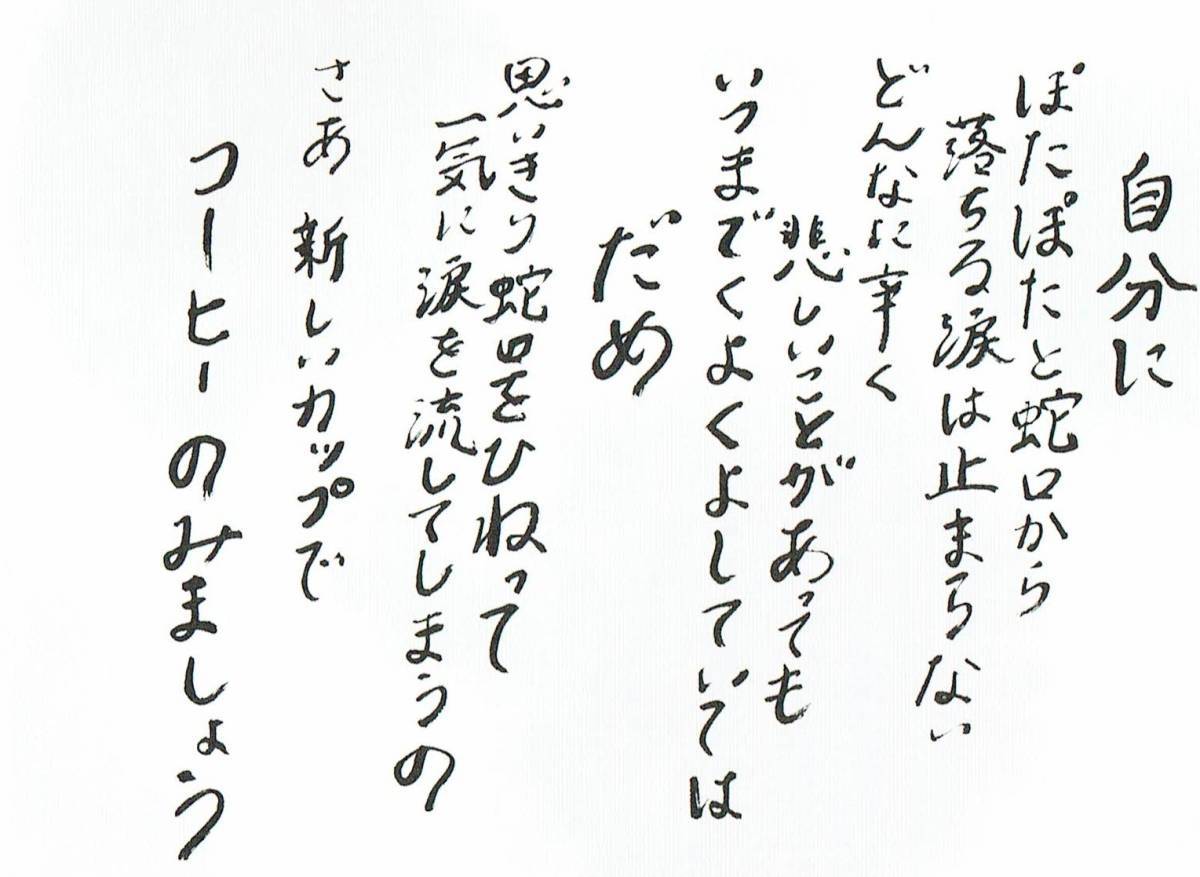 自分に
ぽたぽたと蛇口から
落ちる涙は止まらない
どんなに辛く
悲しいことがあっても
いつまでくよくよしていては
だめ
思いきり蛇口をひねって
一気に涙を流してしまうの
さあ 新しいカップで
コーヒーのみましょう